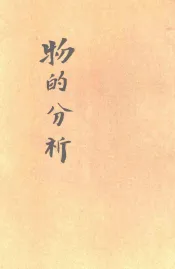 物的分析